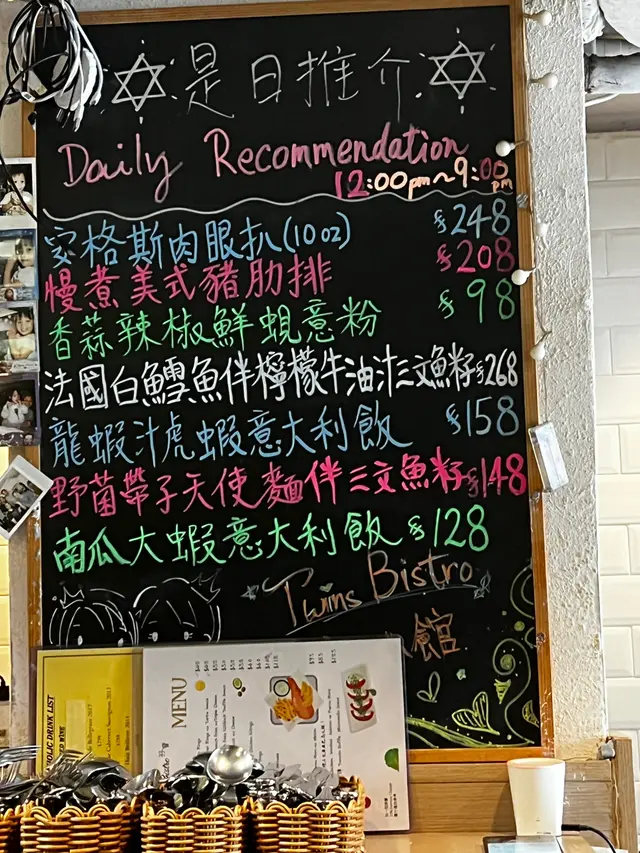 是日推介
Daily Recommendation
12:00pm~9:00pm
安格斯肉眼扒(10oz) $248
慢煮美式豬肋排 $208
香蒜辣椒鮮蜆意粉 $98
法國白鱈魚伴檸檬牛油汁三文魚籽 $268
龍蝦汁虎蝦意大利飯 $158
野菌帶子天使麵伴三文魚籽 $148
南瓜大蝦意大利飯 $128
Twins Bistro
館
MENU